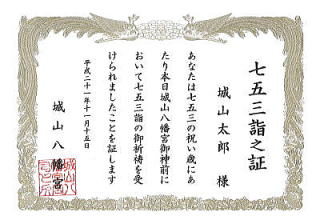 七五三詣之証
城山太郎 様
あなたは七五三の祝い歳にあ
たり本日城山八幡宮御神前に
おいて七五三詣の御祈祷を受
けられましたことを証します
平成二十一年十一月十五日
城山八幡宮